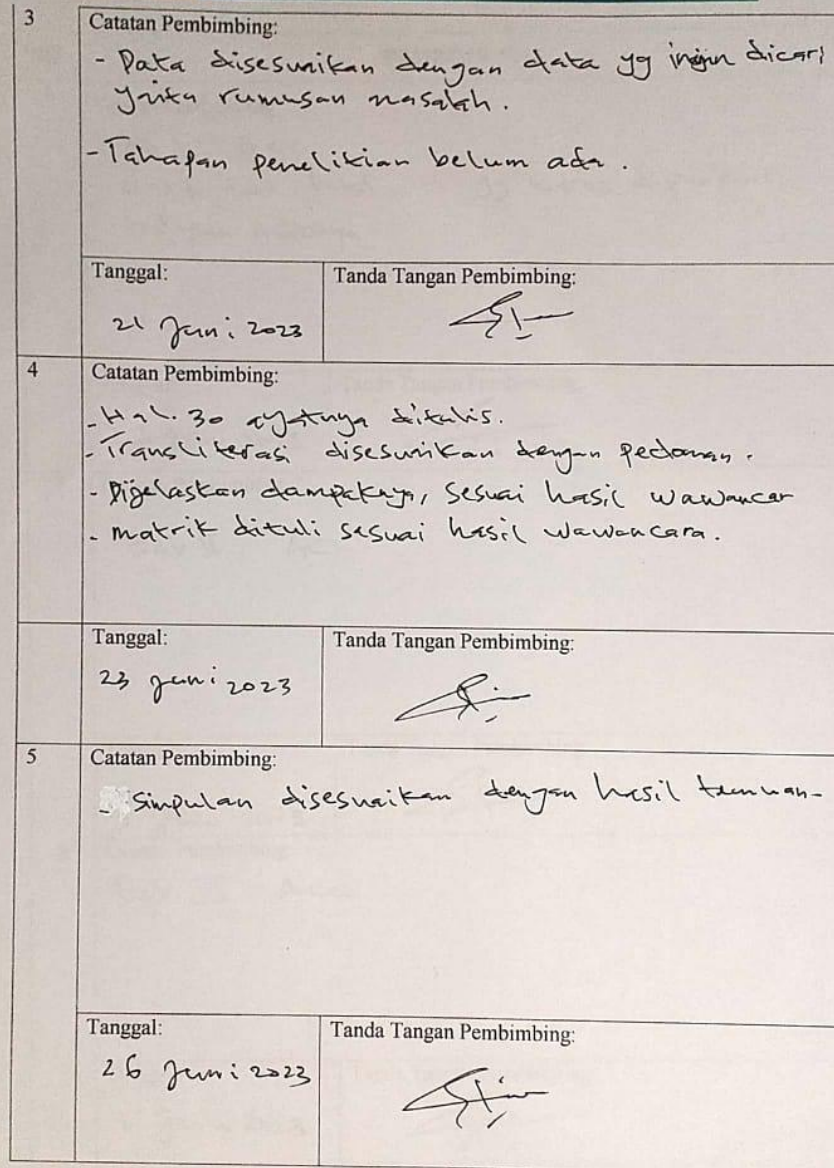 3
Catatan Pembimbing:
- Data disesuaikan dengan data yg ingin dicari
yaitu rumusan masalah.
- Tahapan penelitian belum ada.
Tanggal:
Tanda Tangan Pembimbing:
21 Juni 2023
4
Catatan Pembimbing:
- Hal. 30 ayatnya ditulis.
- Transliterasi disesuaikan dengan pedoman.
- Dijelaskan dampaknya, sesuai hasil wawancar
- matrik dituli sesuai hasil wawancara.
Tanggal:
Tanda Tangan Pembimbing:
23 Juni 2023
5
Catatan Pembimbing:
- Simpulan disesuaikan dengan hasil temuan-
Tanggal:
Tanda Tangan Pembimbing:
26 Juni 2023